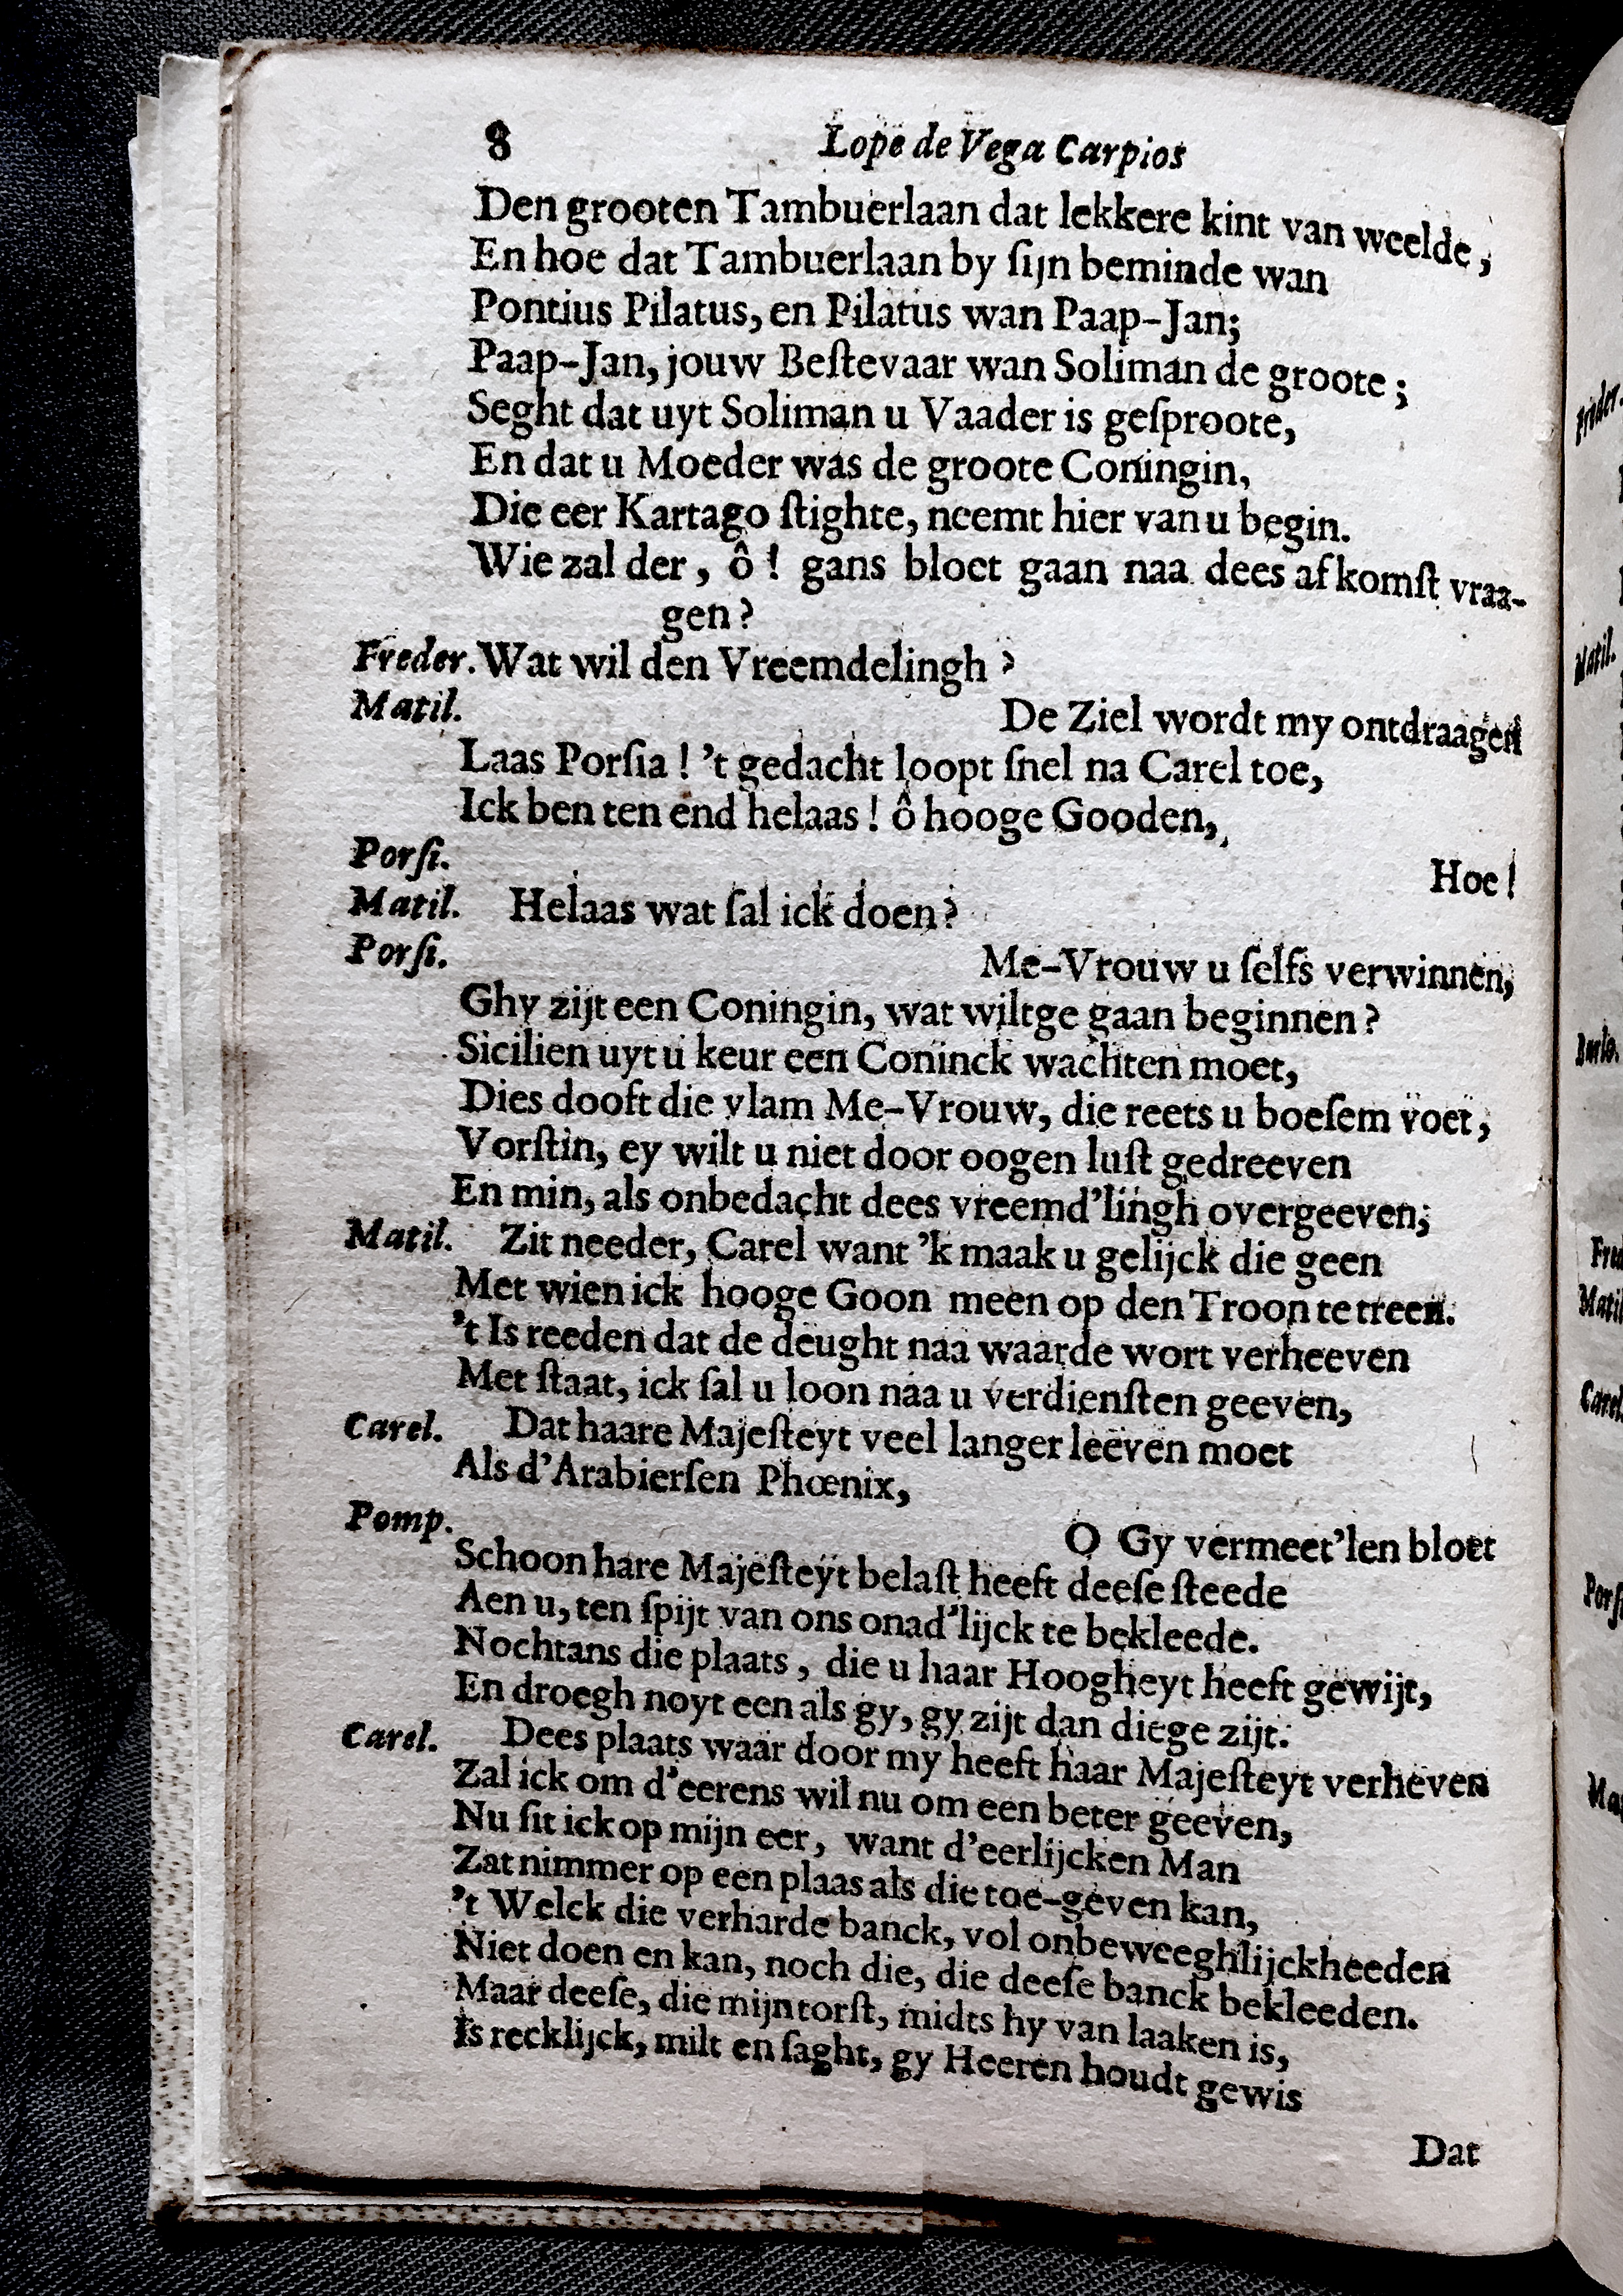 8 Lope de Vega Carpios
Den grooten Tambuerlaan dat lekkere kint van weelde,
En hoe dat Tambuerlaan by ſijn beminde wan
Pontius Pilatus, en Pilatus wan Paap-Jan;
Paap-Jan, jouw Beſtevaar wan Soliman de groote;
Seght dat uyt Soliman u Vaader is geſproote,
En dat u Moeder was de groote Coningin,
Die eer Kartago ſtighte, neemt hier van u begin.
Wie zal der, ô! gans bloet gaan naa dees afkomſt vraa-
gen?
Freder. Wat wil den Vreemdelingh?
Matil. De Ziel wordt my ontdraagen
Laas Porſia! 't gedacht loopt ſnel na Carel toe,
Ick ben ten end helaas! ô hooge Gooden,
Porſi. Hoe!
Matil. Helaas wat ſal ick doen?
Porſi. Me-Vrouw u ſelfs verwinnen,
Ghy zijt een Coningin, wat wiltge gaan beginnen?
Sicilien uyt u keur een Coninck wachten moet,
Dies dooft die vlam Me-Vrouw, die reets u boeſem voet,
Vorſtin, ey wilt u niet door oogen luſt gedreeven
En min, als onbedacht dees vreemd'lingh overgeeven;
Matil. Zit needer, Carel want 'k maak u gelijck die geen
Met wien ick hooge Goon meen op den Troon te treen.
't Is reeden dat de deught naa waarde wort verheeven
Met ſtaat, ick ſal u loon naa u verdienſten geeven,
Carel. Dat haare Majeſteyt veel langer leeven moet
Als d'Arabierſen Phœnix,
Pomp. O Gy vermeet'len bloet
Schoon hare Majeſteyt belaſt heeft deeſe ſteede
Aen u, ten ſpijt van ons onad'lijck te bekleede.
Nochtans die plaats, die u haar Hoogheyt heeft gewijt,
En droegh noyt een als gy, gy zijt dan die ge zijt.
Carel. Dees plaats waar door my heeft haar Majeſteyt verheven
Zal ick om d'eerens wil nu om een beter geeven,
Nu ſit ick op mijn eer, want d'eerlijcken Man
Zat nimmer op een plaas als die toe-geven kan,
't Welck die verharde banck, vol onbeweeghlijckheeden
Niet doen en kan, noch die, die deeſe banck bekleeden.
Maar deeſe, die mijn torſt, midts hy van laaken is,
Is recklijck, milt en ſaght, gy Heeren houdt gewis
Dat
Freder.
Matil.
Matil
Carel